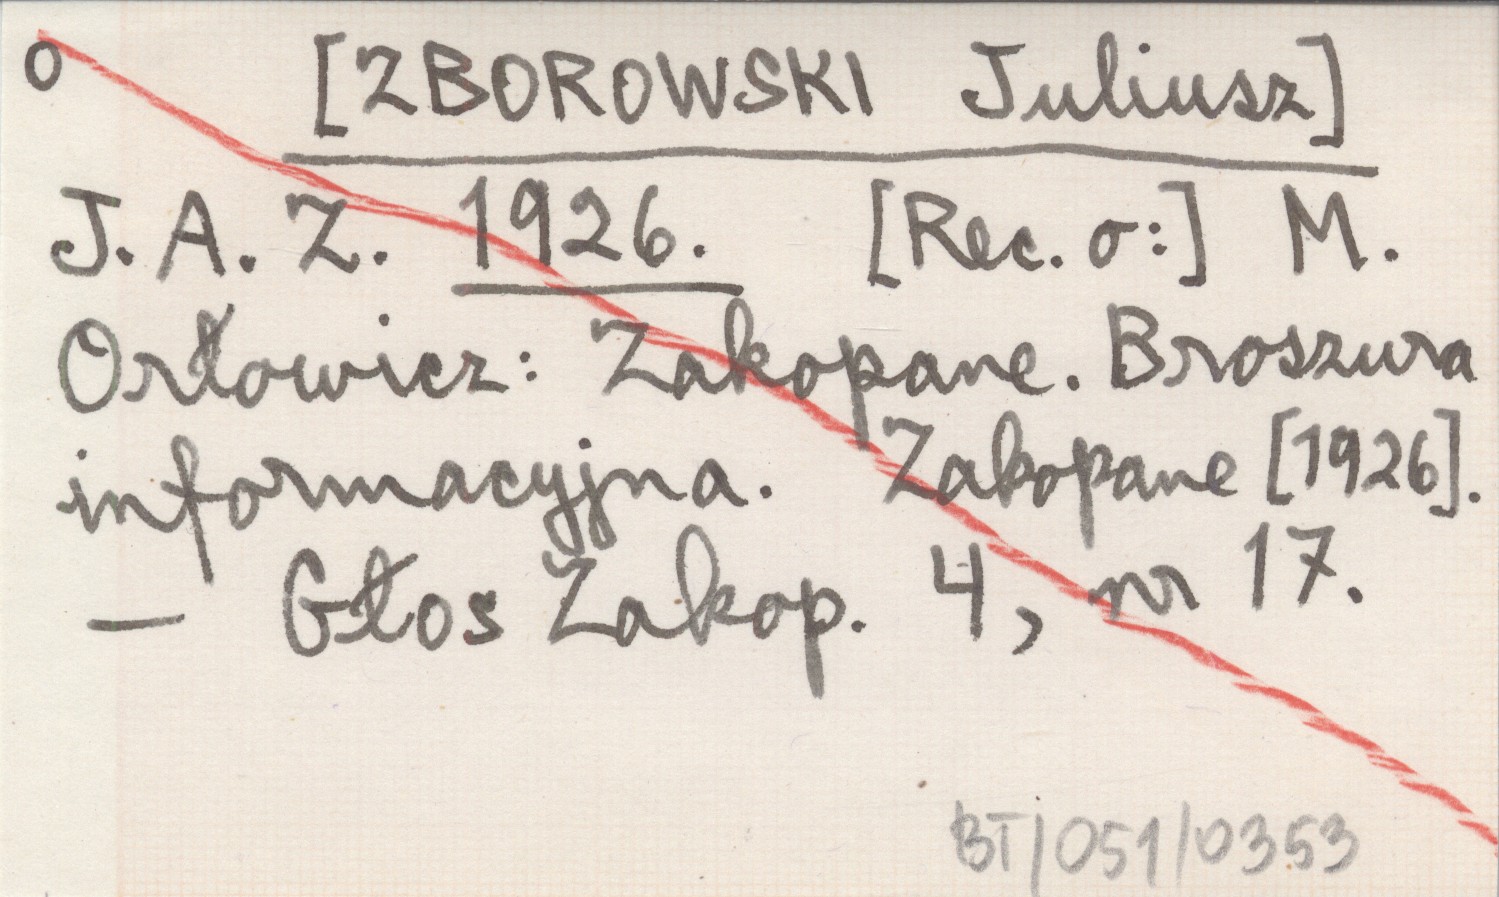 o [ZBOROWSKI Juliusz]
J. A. Z. 1926. [Rec. o:] M.
Orłowicz: Zakopane. Broszura
informacyjna. Zakopane [1926].
— Głos Zakop. 4, nr 17.
BT/051/0353